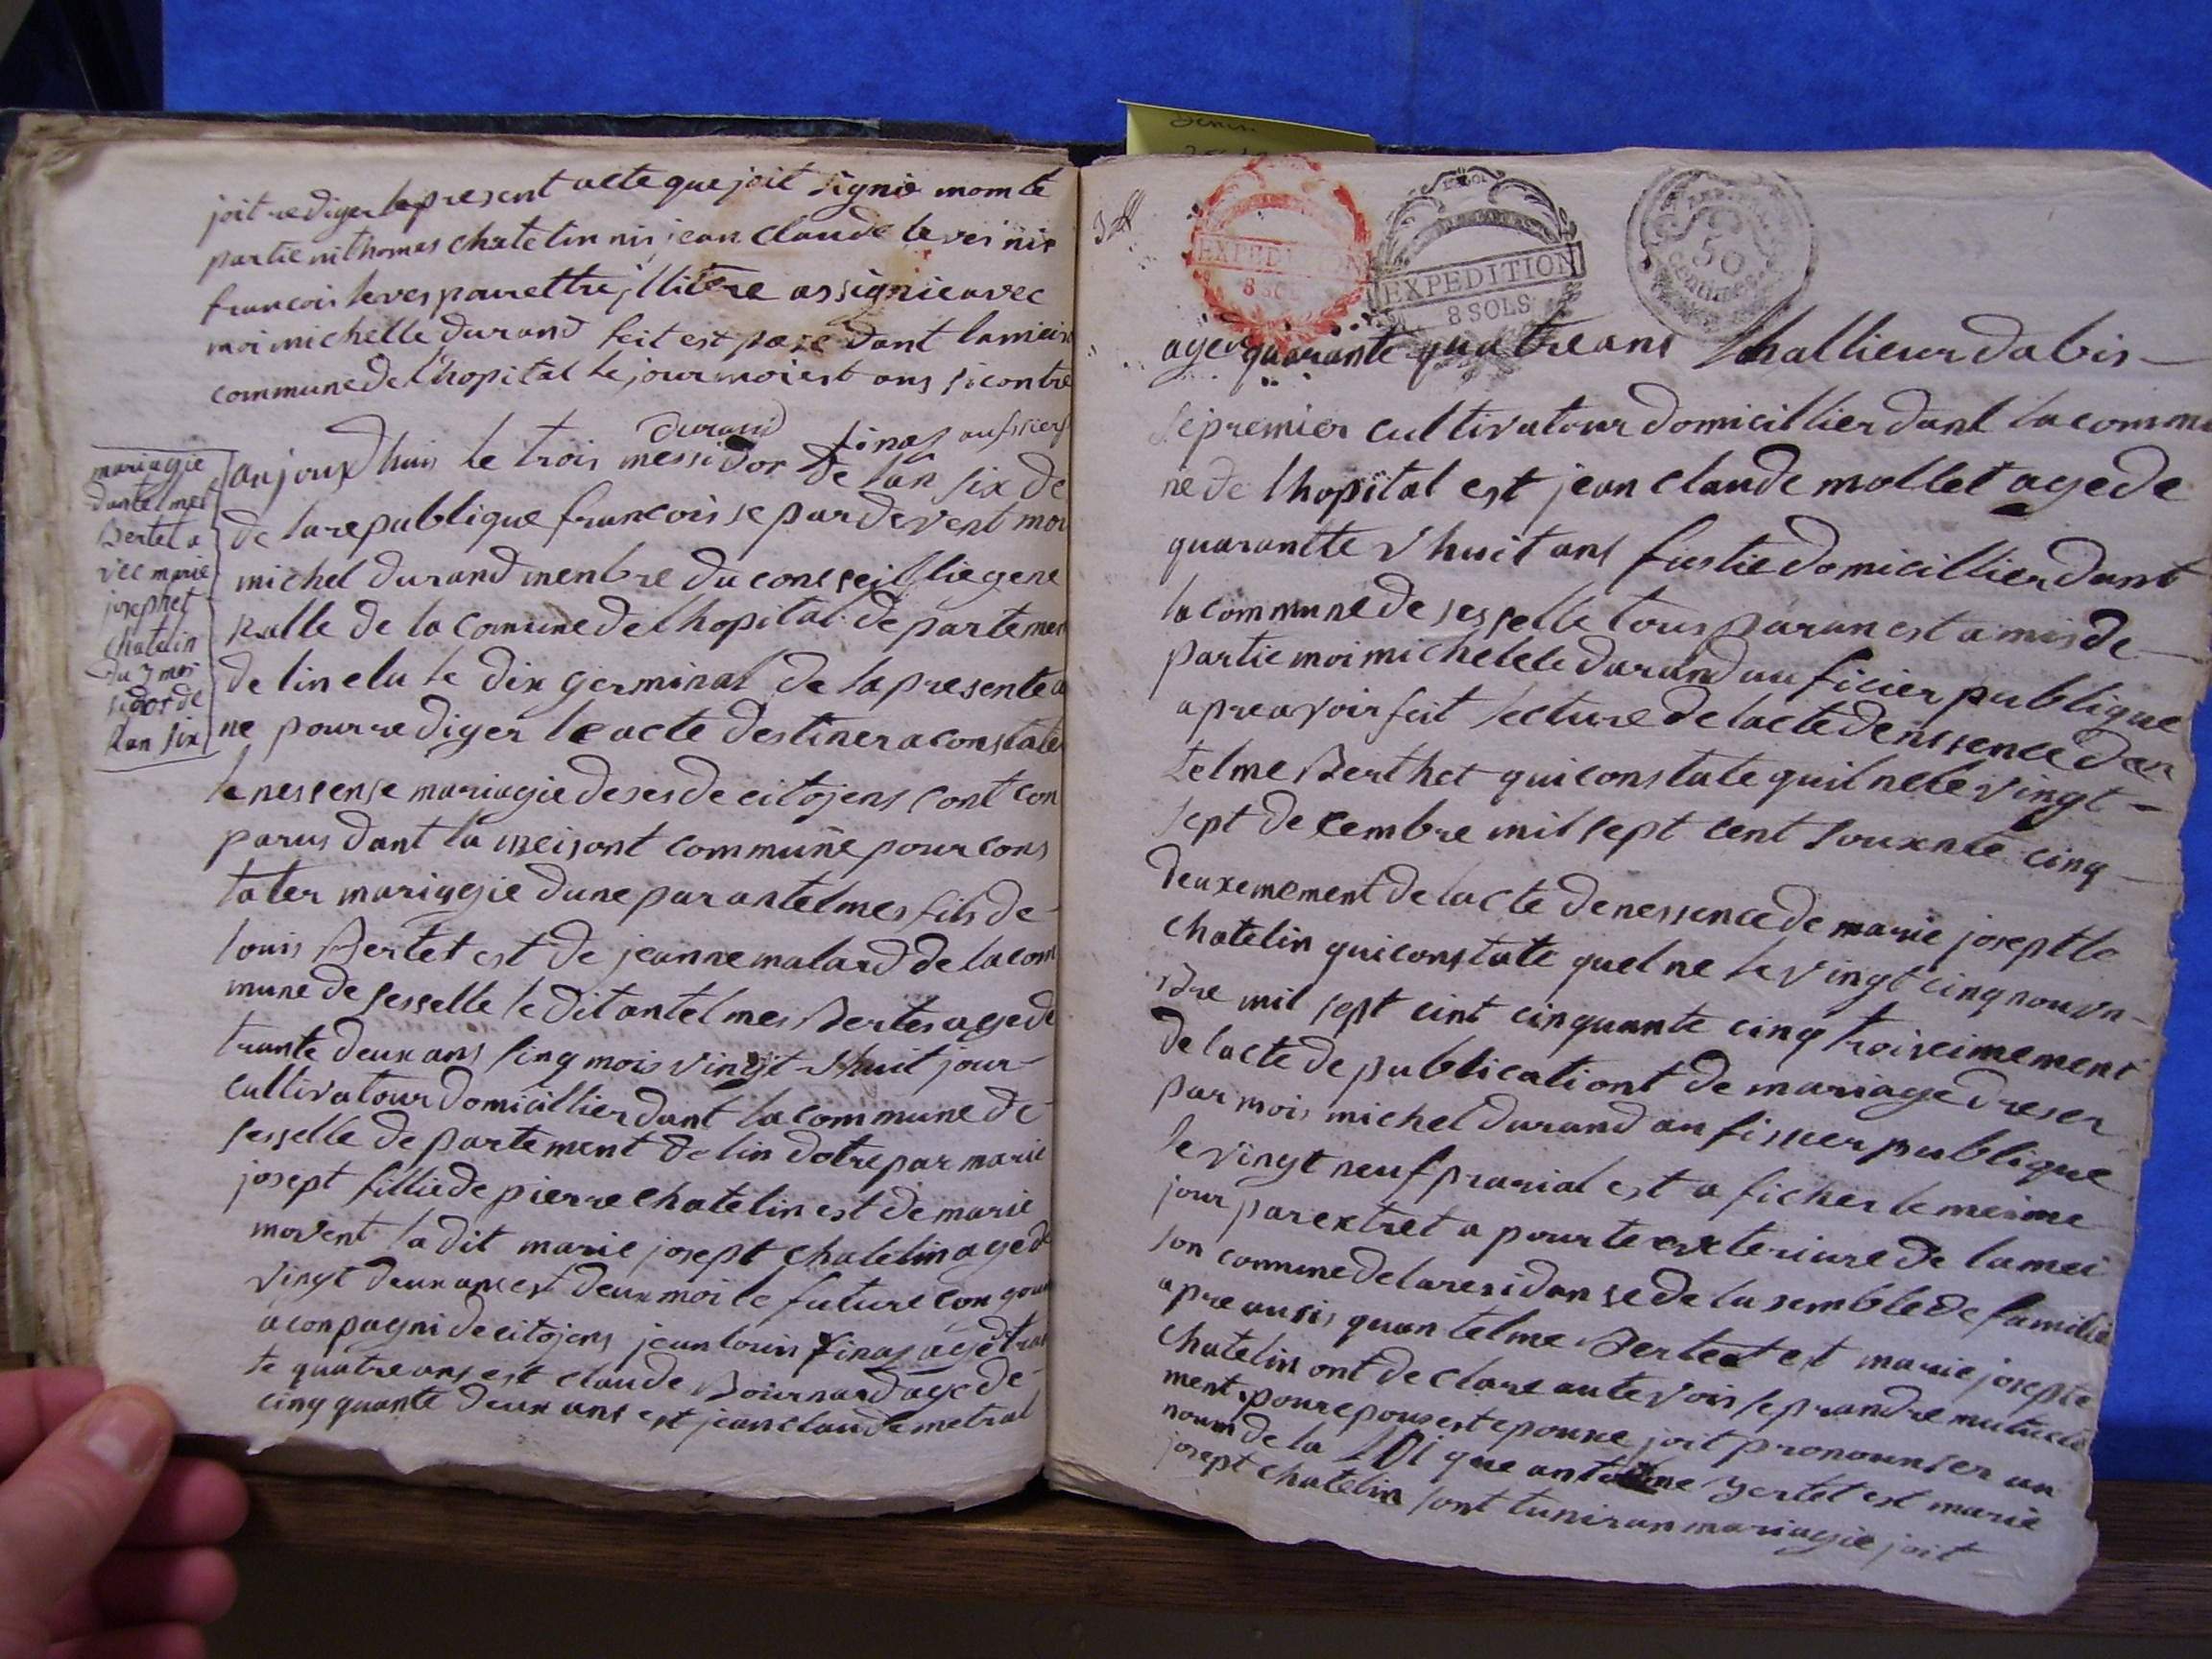 joit rediger le present acte que jait signie nomte
partie ni thomas chatelin ni jean claude leves nis
francois leves pour ettre illitere assignie avec
moi michelle durand feit est pase dant la meis
commune de lhopital le jour moi est ans si contre
durand finas aufsier
mariagie
dantelmes
Bertet a
vec marie
josephet
chatelin
du 3 mes
sidor de
lan six
anjourdhuis le trois messidor de lan six de
de la republique francoisse par devent moi
michel durand menbre du conseillie gene
ralle de la comune de lhopital departemen
de lin elu le dix germinal de la presente a
ne pour rediger le acte destiner a constater
le nessense mariagie deses de citojens sont con
parus dant la meisont commune pour cons
tater mariagie dune par antelmes fils de
louis Bertet est de jeanne malard de la com
mune de sesselle le dit antelmes Bertes age de
trante deux ans sinq mois vingt-huit jour
cultivatour domicillier dant la commune de
sesselle departement de lin dotre par marie
josept fillie de pierre chatelin est de marie
movent la dit marie josept chatelin age de
vingt deux ans est deux moi le future congoin
aconpagni de citojens jean louis finas age tran
te quatre ans est claude Bournard age de
cinq quante deux ans est jean claude metral
EXPEDITION
8 SOLS
EXPEDITION
8 SOLS
50
centimes
age quarante quatre ans thallieur dabis
le premier cultivatour domicillier dant la commu
ne de lhopital est jean claude mollet age de
quarantte vhuit ans fustie domicillier dant
la commune de sesselle tous paran est amis de
partie moi michelele durand aufficier publique
apre avoir feit lecture de lacte de nessence dan
telme Berthet qui constate quil ne le vingt
sept decembre mil sept cent souxnte cinq
deuxemement de lacte de nessence de marie josept le
chatelin qui constate quel ne le vingt cinq nouvn
bre mil sept cint cinquante cinq troiseimement
de lacte de publicationt de mariage dreser
par mois michel durand au fisier publique
le vingt neuf prarial est a ficher le meime
jour par extret a pourte exteriure de la mei
son commune de la residanse de la semblede famille
apre ausis quantelme Bertet et marie josepte
chatelin ont declare aute vois se prandre mutuele
ment pour epous est epouse joit pronounser au
noum de la loi que antelme Bertet est marie
josept chatelin sont tunis an mariagie joit